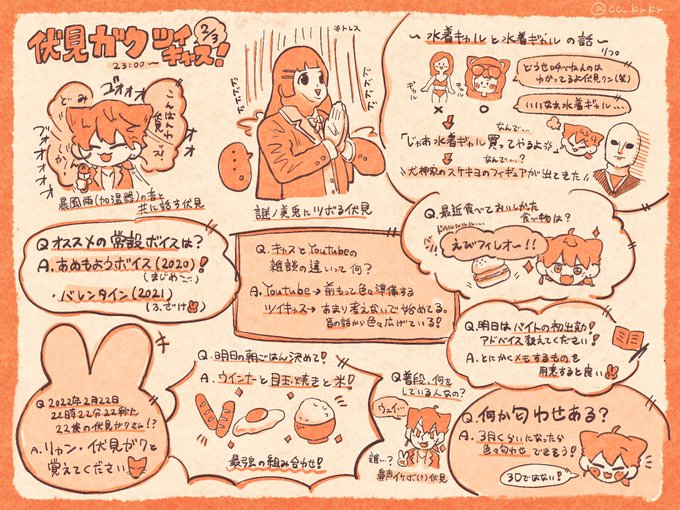 @cc_krkr
伏見ガク ツイキャス! 2/3
23:00〜
ゴオオオ
どーみ
こんばんわ
伏見ッス!
ブオオオオ
オオオ
暴風雨(加湿器)の音と
共に話す伏見
※トレス
謎ノ美兎にツボる伏見
〜水着ギャルと水着ギャルの話〜
リプロ
どうせ呼べねぇのは
わかってるよ伏見クン(笑)
いいなぁ水着ギャル…
ギャル
ギャル
なんで…
「じゃあ水着ギャル買ってやるよ」
なんで…?
犬神家のスケキヨのフィギュアが出てきた
Q.オススメの常設ボイスは?
A.あめもようボイス(2020)!
(まじめめ…)
・バレンタイン(2021)
(ふざけ)
Q.キャスとYoutubeの
雑談の違いって何?
A.Youtube→前もって色々準備する
ツイキャス→あまり考えないで始めてる。
昔の話から色々広げている!
Q.最近食べておいしかった
食べ物は?
えびフィレオー!!
Q.明日はバイトの初出勤!
アドバイス教えてください!
A.とにかくメモするものを
用意すると良い
Q 2022年2月22日
22時22分22秒に
22歳の伏見ガクさん!?
A.リャン・伏見ガクと
覚えてください
Q.明日の朝ごはん決めて!
A.ウインナーと目玉焼きと米!
最強の組み合わせ!
Q.普段、何を
している人なの?
ウェイ…
誰…?
鼻声イケボ(?)伏見
Q.何か匂わせある?
A.3月くらいになったら
色々匂わせできそう!
3Dではない!